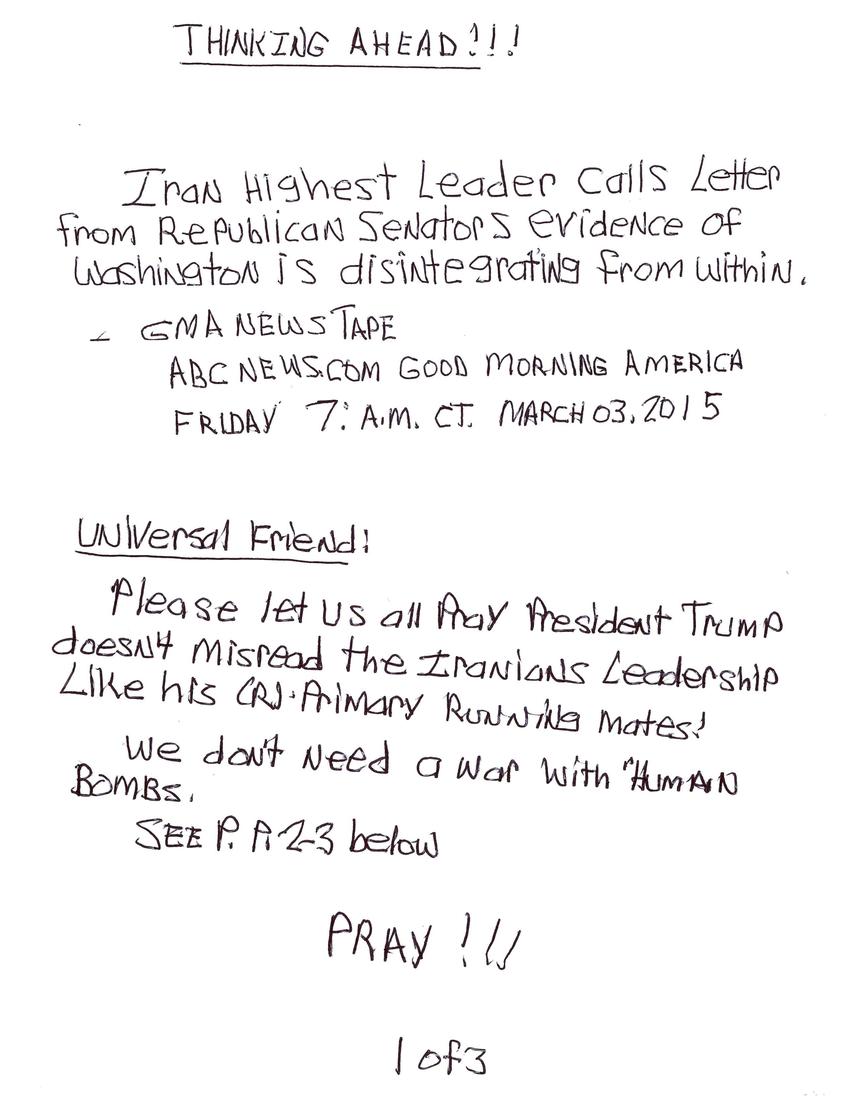 THINKING AHEAD!!!
Iran Highest Leader Calls Letter
from Republican Senators evidence of
Washington is disintegrating from within.
- GMA NEWS TAPE
ABC NEWS.COM GOOD MORNING AMERICA
FRIDAY 7: A.M. CT. MARCH 03, 2015
Universal Friend!
Please let us all Pray President Trump
doesn't misread the Iranians Leadership
Like his (R)-Primary Running Mates!
We don't need a war with "HUMAN
BOMBS.
SEE P. P. 2-3 below
PRAY!!!
1 of 3